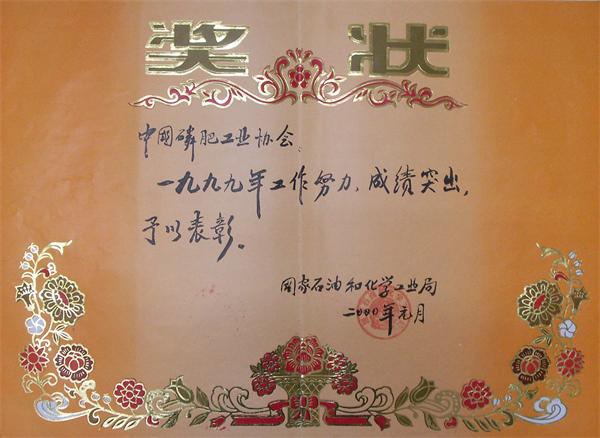 奖状
中国磷肥工业协会:
一九九九年工作努力、成绩突出,
予以表彰。
国家石油和化学工业局
二000年元月